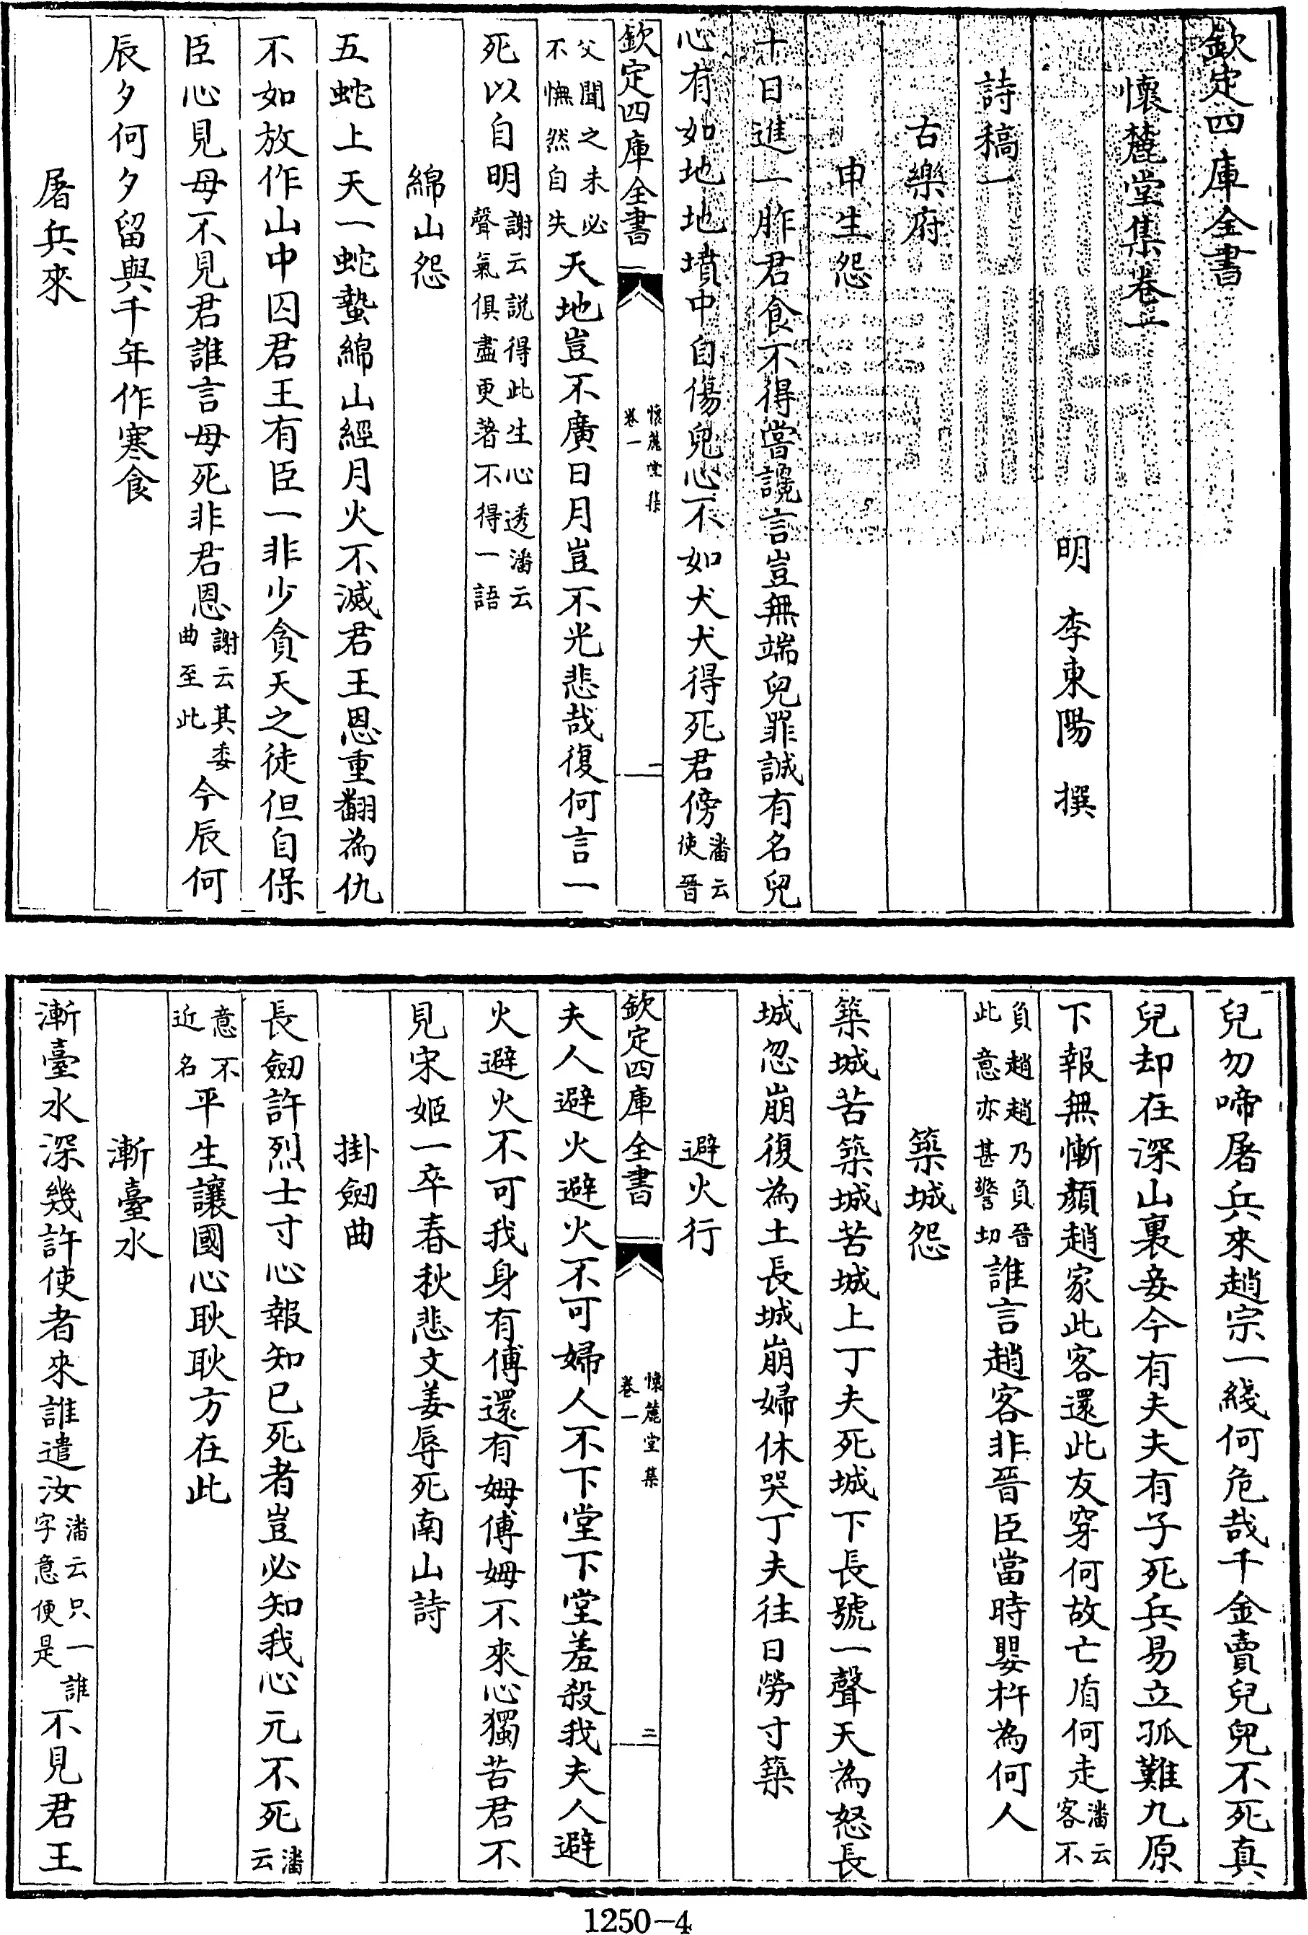 欽定四庫全書
懷麓堂集卷一
明 李東陽 撰
詩稿一
古樂府
申生怨
十日進一胙君食不得嘗讒言豈無端兒罪誠有名兒
心有如地地墳中自傷兒心不如犬犬得死君傍潘云使晉
欽定四庫全書
懷麓堂集
卷一
一
父聞之未必不憮然自失天地豈不廣日月豈不光悲哉復何言一
死以自明謝云説得此生心透潘云聲氣俱盡更著不得一語
綿山怨
五蛇上天一蛇蟄綿山經月火不滅君王恩重翻為仇
不如放作山中囚君王有臣一非少貪天之徒但自保
臣心見母不見君誰言母死非君恩謝云其委曲至此今辰何
辰夕何夕留與千年作寒食
屠兵來
兒勿啼屠兵來趙宗一綫何危哉千金賣兒兒不死真
兒却在深山裏妾今有夫夫有子死兵易立孤難九原
下報無慚顔趙家此客還此友穿何故亡盾何走潘云客不
負趙趙乃負晉此意亦甚警切誰言趙客非晉臣當時嬰杵為何人
築城怨
築城苦築城苦城上丁夫死城下長號一聲天為怒長
城忽崩復為土長城崩婦休哭丁夫往日勞寸築
避火行
欽定四庫全書
懷麓堂集
卷一
二
夫人避火避火不可婦人不下堂下堂羞殺我夫人避
火避火不可我身有傅還有姆傅姆不來心獨苦君不
見宋姬一卒春秋悲文姜辱死南山詩
掛劒曲
長劒許烈士寸心報知已死者豈必知我心元不死潘云
意不近名平生讓國心耿耿方在此
漸臺水
漸臺水深幾許使者來誰遣汝潘云只一誰字意便是不見君王
1250-4